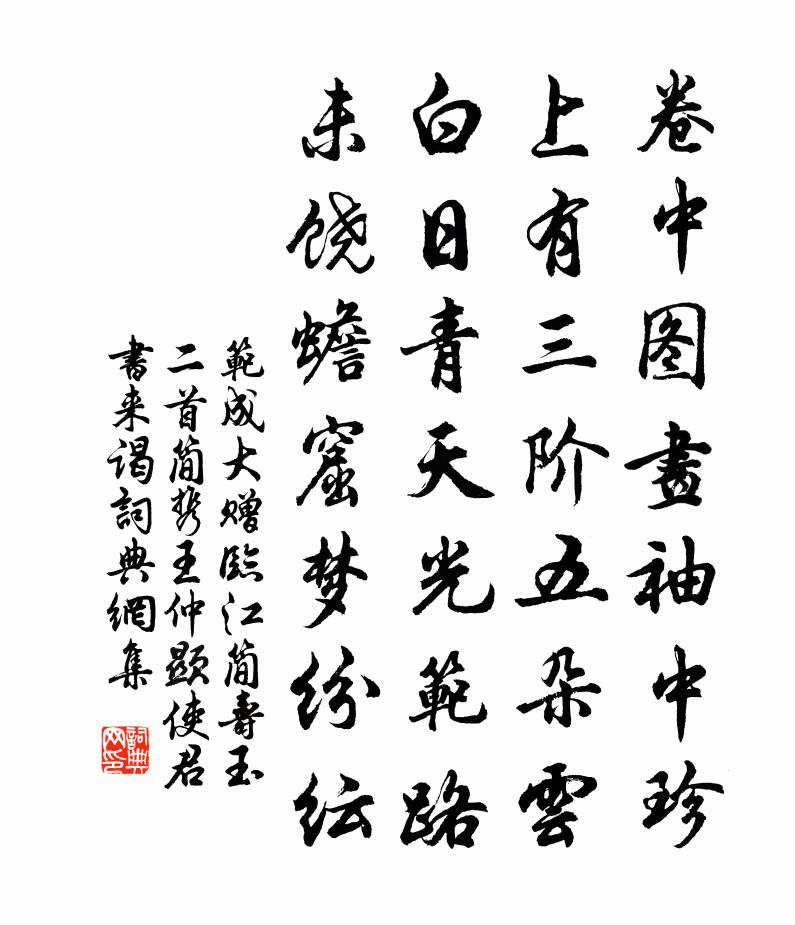 卷中图畫袖中珍
上有三阶五朵雲
白日青天光範路
未饶蟾窟梦纷纭
範成大赠臨江简壽玉
二首简携王仲顯使君
書来谒詞典網集
詞典
网印